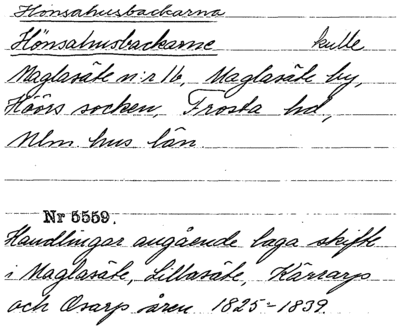 Hönsahusbackarna
Hönsahusbackarne kulle
Maglasäte n:r 1b, Maglasäte by,
Höörs socken, Frosta hd,
Mlm hus län
Nr 5559.
Handlingar angående laga skifte
i Maglasäte, Lillasäte, Kärrarp
och Osarp åren 1825-1839.